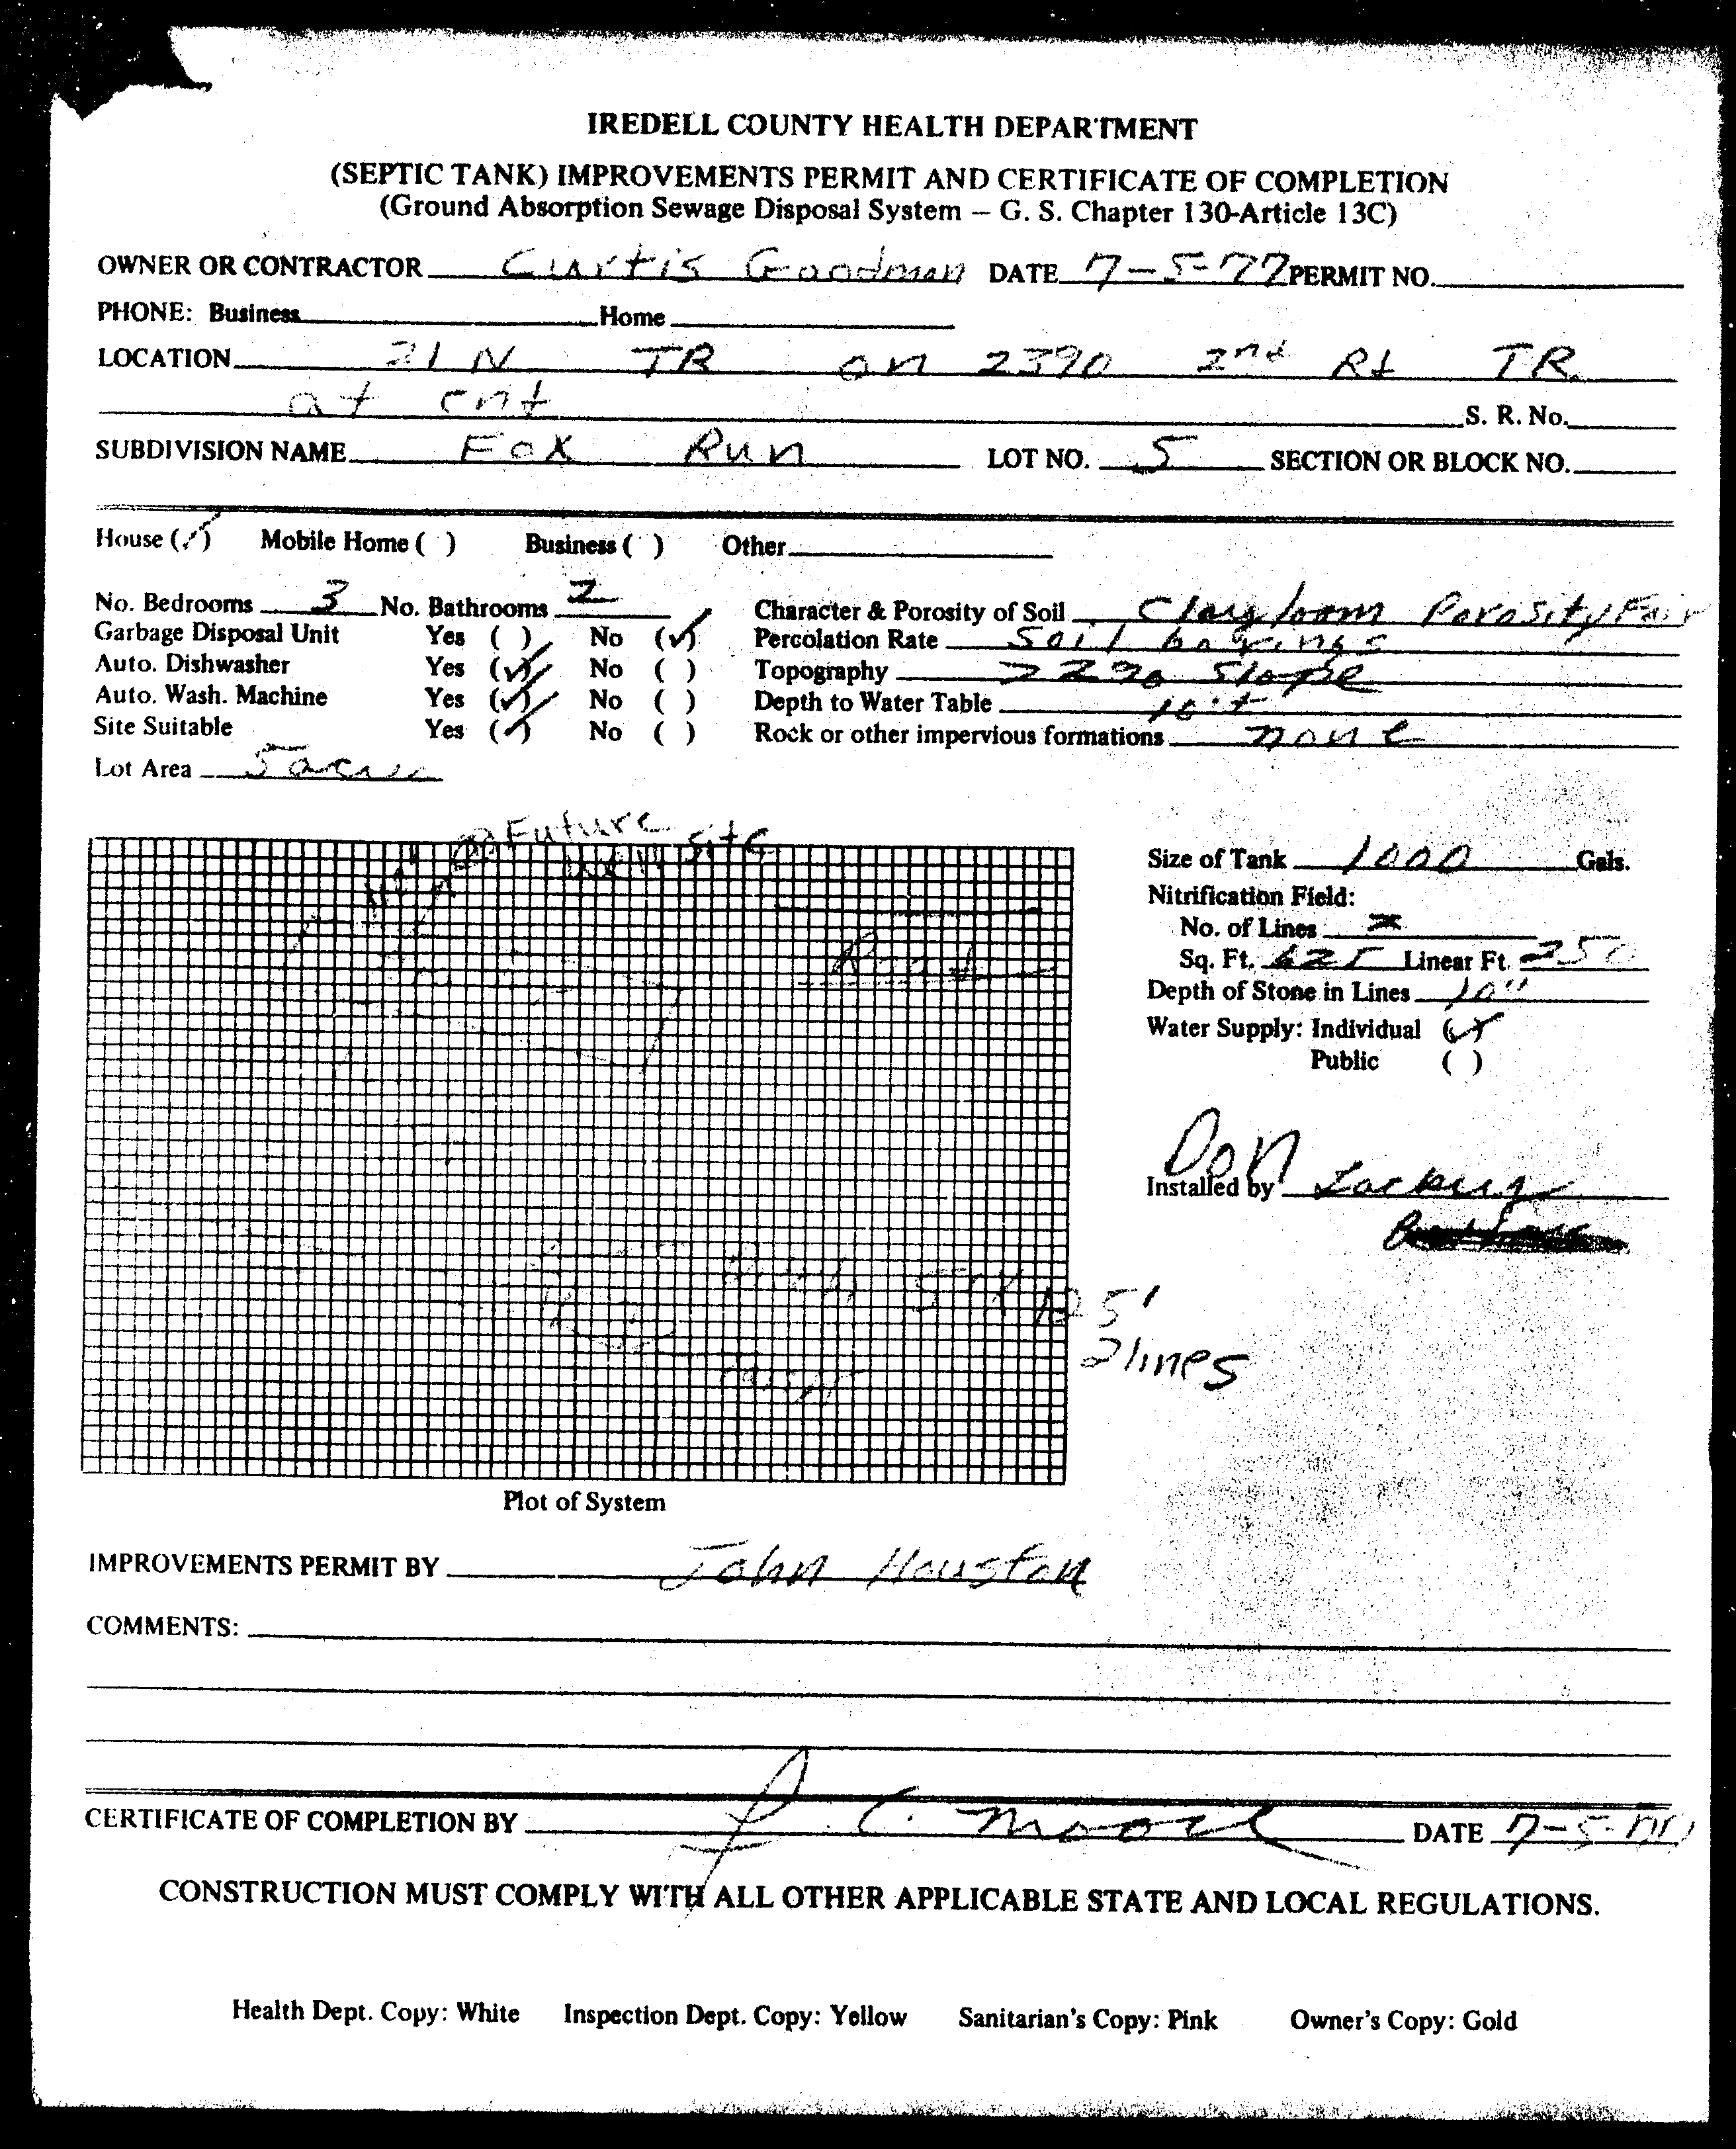 IREDELL COUNTY HEALTH DEPARTMENT
(SEPTIC TANK) IMPROVEMENTS PERMIT AND CERTIFICATE OF COMPLETION
(Ground Absorption Sewage Disposal System – G. S. Chapter 130-Article 13C)
OWNER OR CONTRACTOR Curtis Goodman DATE 7-5-77 PERMIT NO.
PHONE: Business Home
LOCATION 21 N TR on 2390 2nd Rt TR
at
S. R. No.
SUBDIVISION NAME Fox Run LOT NO. 5 SECTION OR BLOCK NO.
House (✓) Mobile Home ( ) Business ( ) Other
No. Bedrooms 3 No. Bathrooms 2 Character & Porosity of Soil Clay loam Porosity Fair
Garbage Disposal Unit Yes ( ) No (✓) Percolation Rate Soil borings
Auto. Dishwasher Yes (✓) No ( ) Topography Slope
Auto. Wash. Machine Yes (✓) No ( ) Depth to Water Table
Site Suitable Yes (✓) No ( ) Rock or other impervious formations none
Lot Area
Future
well site
Road
Size of Tank 1000 Gals.
Nitrification Field:
No. of Lines
Sq. Ft. 625 Linear Ft. 250
Depth of Stone in Lines 10"
Water Supply: Individual (✓)
Public ( )
Don
Installed by
125'
2 lines
Plot of System
IMPROVEMENTS PERMIT BY John Houston
COMMENTS:
CERTIFICATE OF COMPLETION BY C. Moore DATE 7-5-
CONSTRUCTION MUST COMPLY WITH ALL OTHER APPLICABLE STATE AND LOCAL REGULATIONS.
Health Dept. Copy: White Inspection Dept. Copy: Yellow Sanitarian's Copy: Pink Owner's Copy: Gold